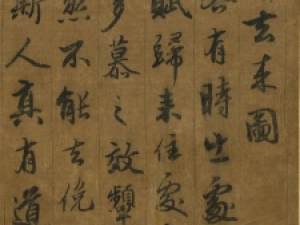 去来圖
各有時出處
賦歸来佳處
多慕之效顰
然不能去俛
斯人真有道